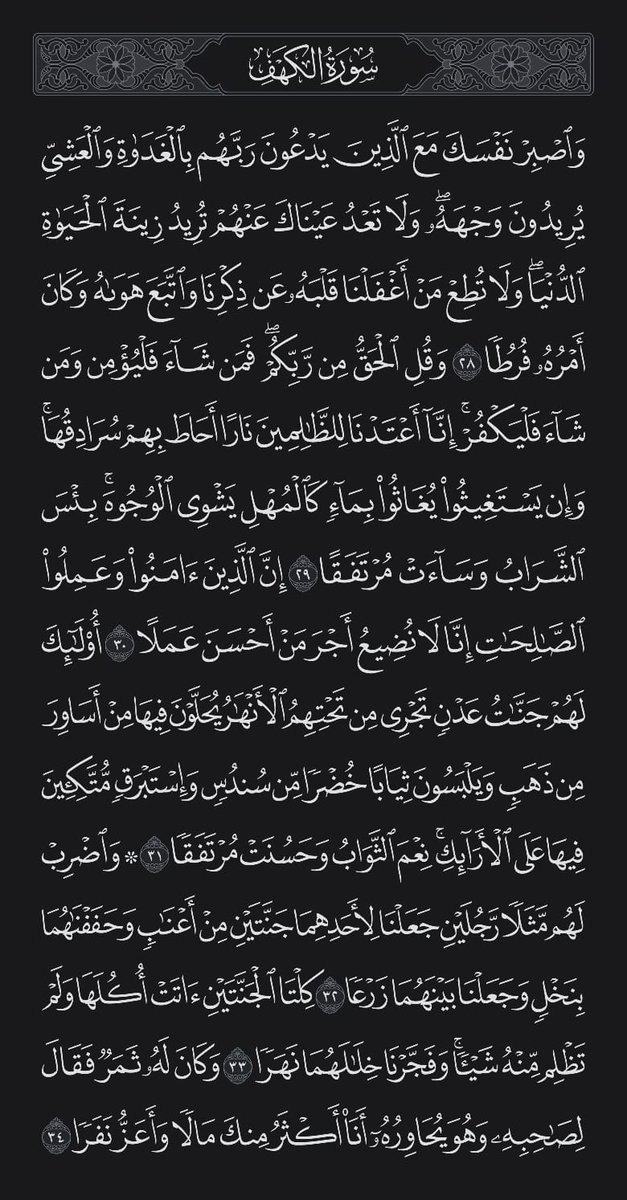 سُورَةُ الكَهْفِ
وَٱصْبِرْ نَفْسَكَ مَعَ ٱلَّذِينَ يَدْعُونَ رَبَّهُم بِٱلْغَدَوٰةِ وَٱلْعَشِىِّ
يُرِيدُونَ وَجْهَهُۥۖ وَلَا تَعْدُ عَيْنَاكَ عَنْهُمْ تُرِيدُ زِينَةَ ٱلْحَيَوٰةِ
ٱلدُّنْيَاۖ وَلَا تُطِعْ مَنْ أَغْفَلْنَا قَلْبَهُۥ عَن ذِكْرِنَا وَٱتَّبَعَ هَوَىٰهُ وَكَانَ
أَمْرُهُۥ فُرُطًا ٢٨ وَقُلِ ٱلْحَقُّ مِن رَّبِّكُمْۖ فَمَن شَآءَ فَلْيُؤْمِن وَمَن
شَآءَ فَلْيَكْفُرْۚ إِنَّآ أَعْتَدْنَا لِلظَّٰلِمِينَ نَارًا أَحَاطَ بِهِمْ سُرَادِقُهَاۚ
وَإِن يَسْتَغِيثُوا۟ يُغَاثُوا۟ بِمَآءٍ كَٱلْمُهْلِ يَشْوِى ٱلْوُجُوهَۚ بِئْسَ
ٱلشَّرَابُ وَسَآءَتْ مُرْتَفَقًا ٢٩ إِنَّ ٱلَّذِينَ ءَامَنُوا۟ وَعَمِلُوا۟
ٱلصَّٰلِحَٰتِ إِنَّا لَا نُضِيعُ أَجْرَ مَنْ أَحْسَنَ عَمَلًا ٣٠ أُو۟لَٰٓئِكَ
لَهُمْ جَنَّٰتُ عَدْنٍ تَجْرِى مِن تَحْتِهِمُ ٱلْأَنْهَٰرُ يُحَلَّوْنَ فِيهَا مِنْ أَسَاوِرَ
مِن ذَهَبٍ وَيَلْبَسُونَ ثِيَابًا خُضْرًا مِّن سُندُسٍ وَإِسْتَبْرَقٍ مُّتَّكِـِٔينَ
فِيهَا عَلَى ٱلْأَرَآئِكِۚ نِعْمَ ٱلثَّوَابُ وَحَسُنَتْ مُرْتَفَقًا ٣١ ۞ وَٱضْرِبْ
لَهُم مَّثَلًا رَّجُلَيْنِ جَعَلْنَا لِأَحَدِهِمَا جَنَّتَيْنِ مِنْ أَعْنَٰبٍ وَحَفَفْنَٰهُمَا
بِنَخْلٍ وَجَعَلْنَا بَيْنَهُمَا زَرْعًا ٣٢ كِلْتَا ٱلْجَنَّتَيْنِ ءَاتَتْ أُكُلَهَا وَلَمْ
تَظْلِم مِّنْهُ شَيْـًٔاۚ وَفَجَّرْنَا خِلَٰلَهُمَا نَهَرًا ٣٣ وَكَانَ لَهُۥ ثَمَرٌ فَقَالَ
لِصَٰحِبِهِۦ وَهُوَ يُحَاوِرُهُۥٓ أَنَا۠ أَكْثَرُ مِنكَ مَالًا وَأَعَزُّ نَفَرًا ٣٤